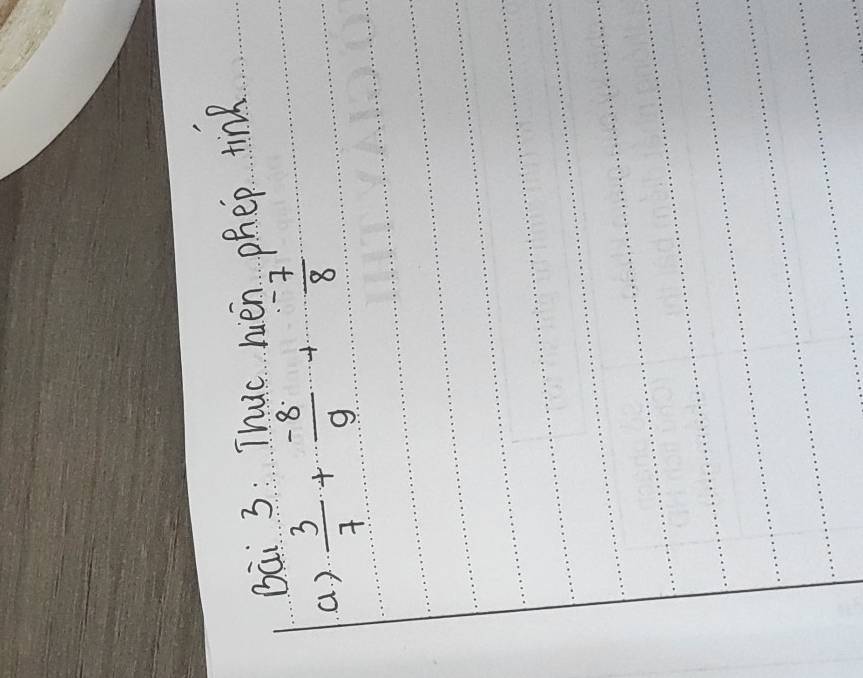 Bài 3: Thực hiện phép tính
a) 3/7 + -8/9 + -7/8